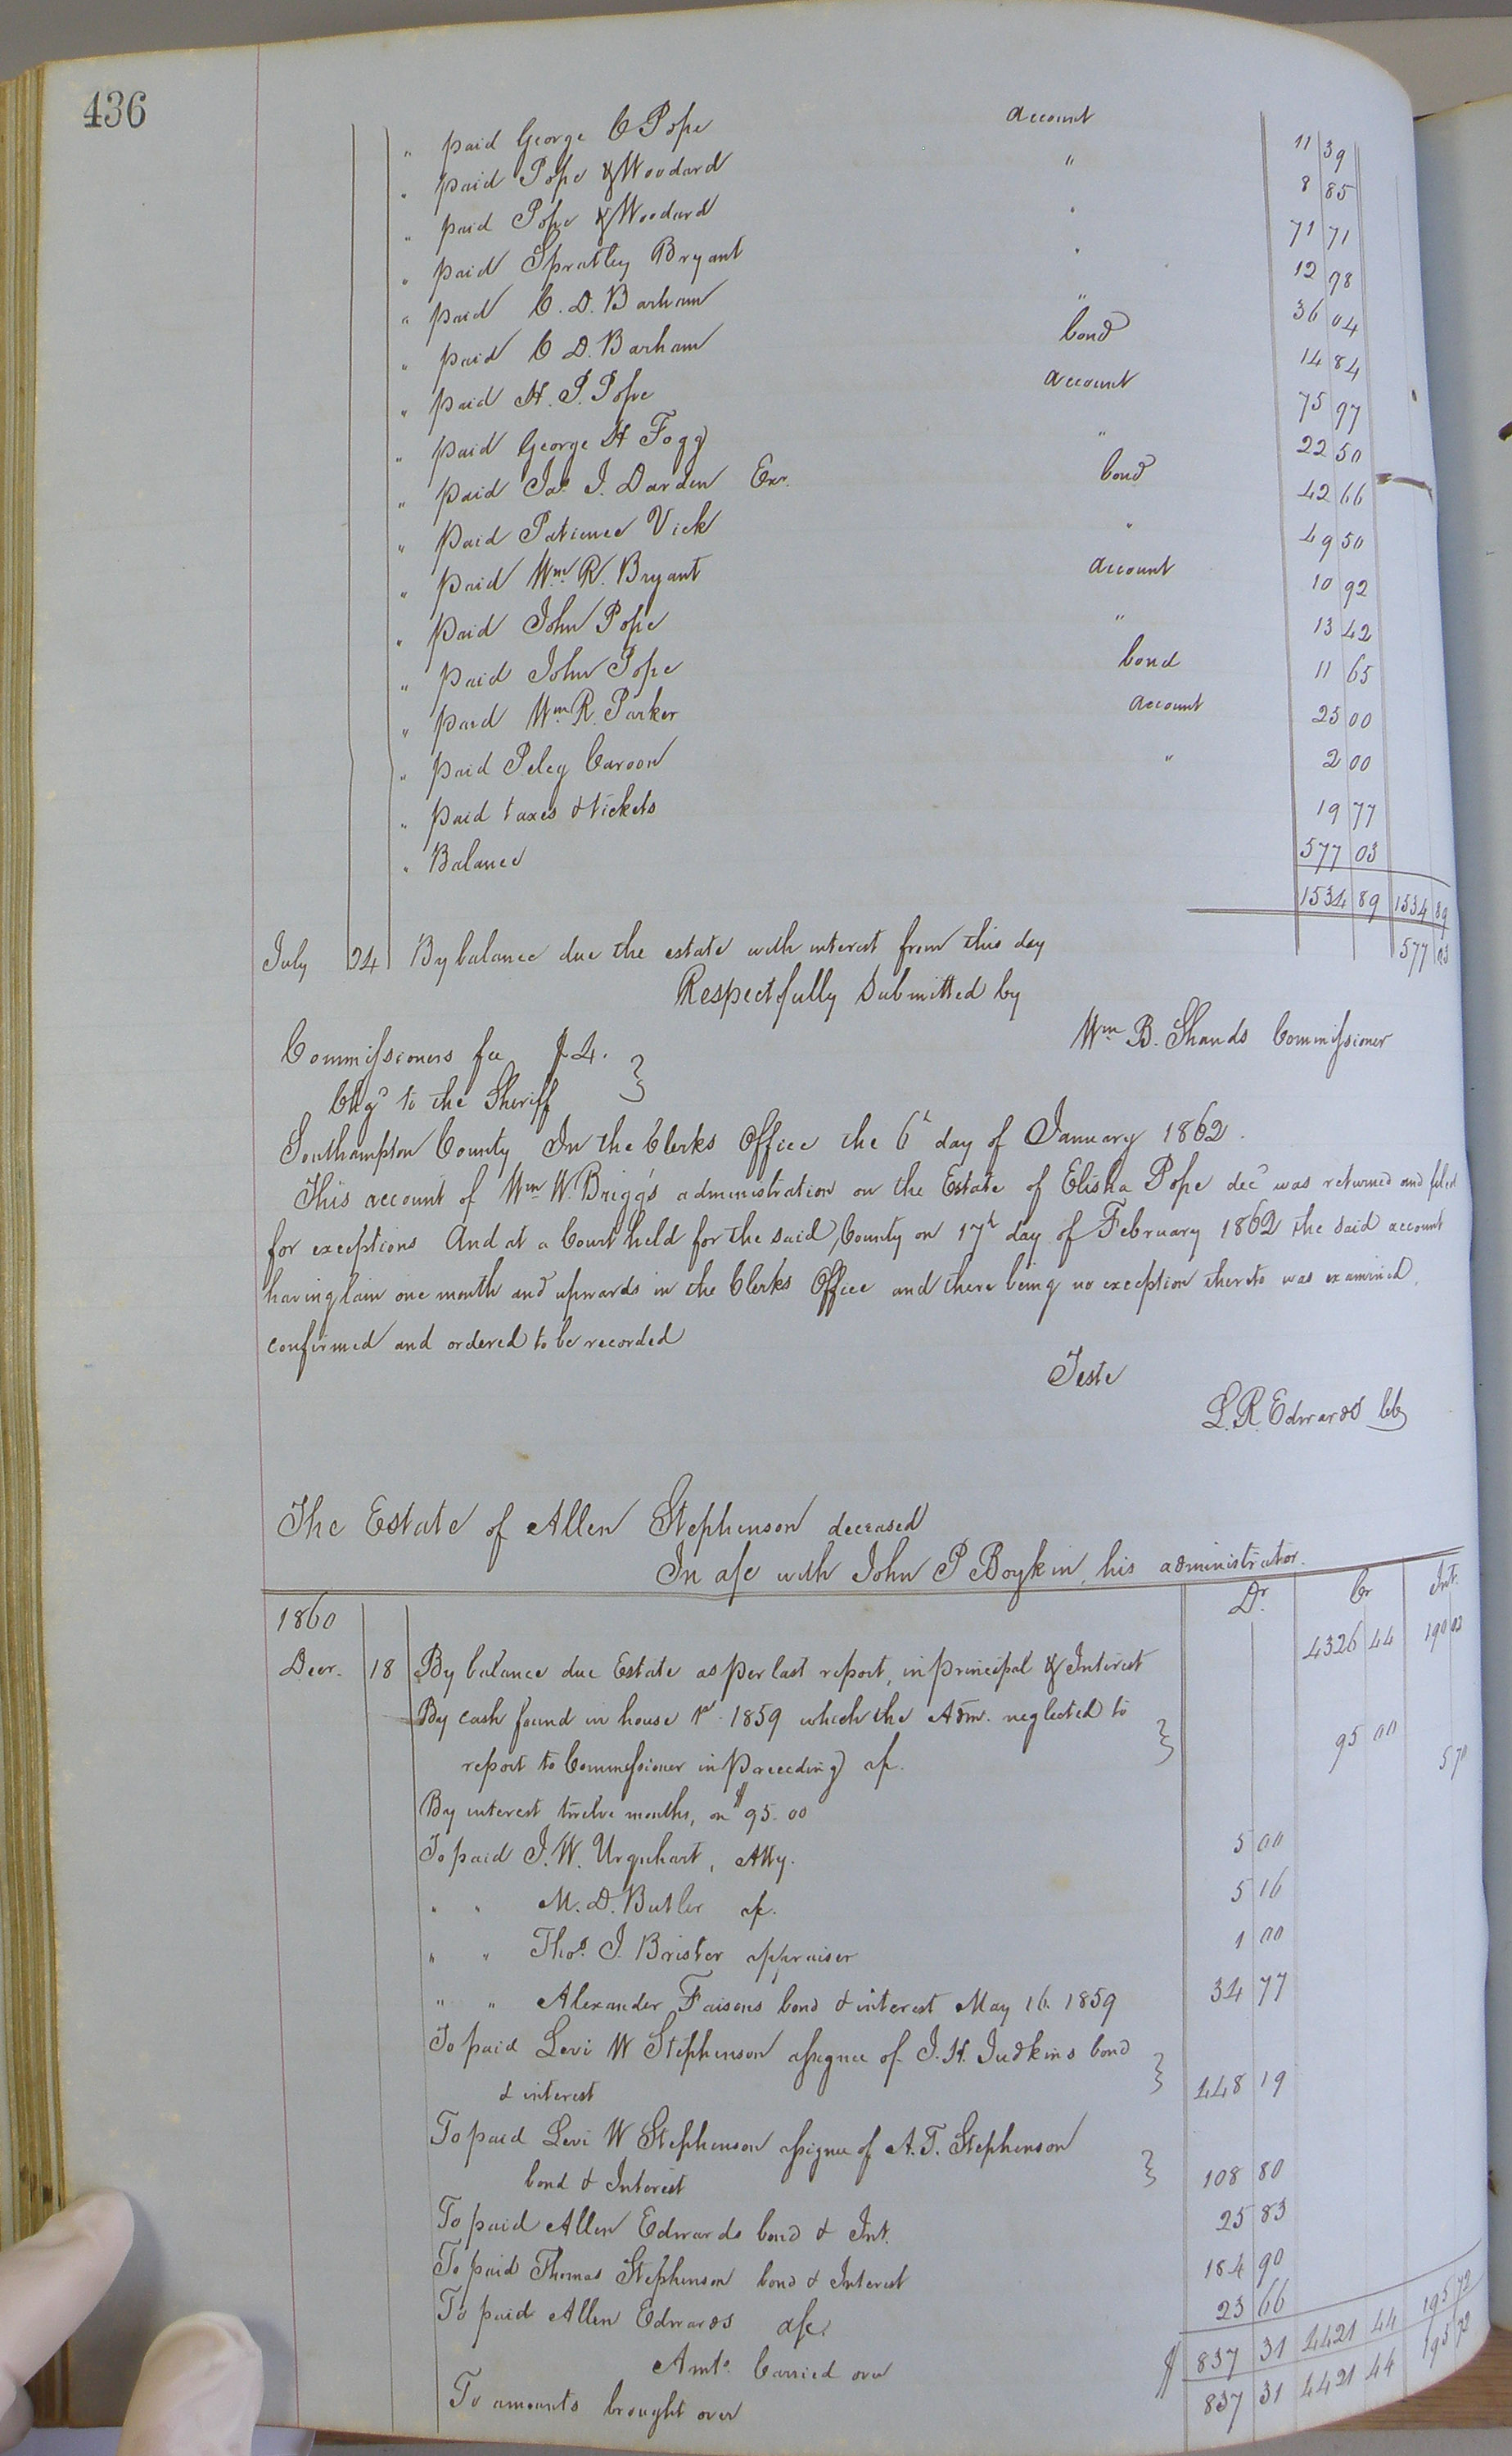 436
" paid George C Pope account 11 39
" paid Pope & Woodard " 8 85
" paid Pope & Woodard " 71 71
" paid Spratley Bryant " 12 98
" paid C. D. Barham " 36 04
" paid C D. Barham bond 14 84
" paid H. P. Pope account 75 97
" paid George H Fogg " 22 50
" paid Jas. J. Darden Exr. bond 42 66
" paid Patience Vick " 49 50
" paid Wm. R. Bryant account 10 92
" paid John Pope " 13 42
" paid John Pope bond 11 65
" paid Wm R. Parker account 25 00
" paid Peleg Caroon " 2 00
" paid taxes & tickets 19 77
" Balance 577 03
1534 89 1534 89
July 24 By balance due the estate with interest from this day 577 03
Respectfully Submitted by
Wm B. Shands Commissioner
Commissioners fee $4. }
Chgd to the Sheriff
Southampton County In the Clerks Office the 6h day of January 1862.
This account of Wm W. Briggs administration on the Estate of Elisha Pope decd was returned and filed
for exceptions And at a Court held for the said County on 17h day of February 1862 the said account
having lain one month and upwards in the Clerks Office and there being no exception thereto was examined
confirmed and ordered to be recorded
Teste
L. R. Edwards Clk
The Estate of Allen Stephenson deceased
In a/c with John P Boykin, his administrator.
1860 Dr. Cr Int.
Decr. 18 By balance due Estate as per last report, in principal & Interest 4326 44 190 02
By cash found in house 1859 which the Adm. neglected to }
report to Commissioner in Preceeding a/c. 95 00
By interest twelve months, on $95.00 5 70
To paid J. W. Urquhart, Atty. 5 00
" " M. D. Butler a/c. 5 16
" " Thos. J. Brister appraiser 1 00
" " Alexander Faisons bond & interest May 16. 1859 34 77
To paid Levi W Stephenson assignee of J. H. Judkins bond }
& interest 448 19
To paid Levi W Stephenson assignee of A. T. Stephenson }
bond & Interest 108 80
To paid Allen Edwards bond & Int. 25 83
To paid Thomas Stephenson bond & Interest 184 90
To paid Allen Edwards a/c. 23 66
Amts. Carried over $ 837 31 4421 44 195 72
To amounts brought over 837 31 4421 44 195 72